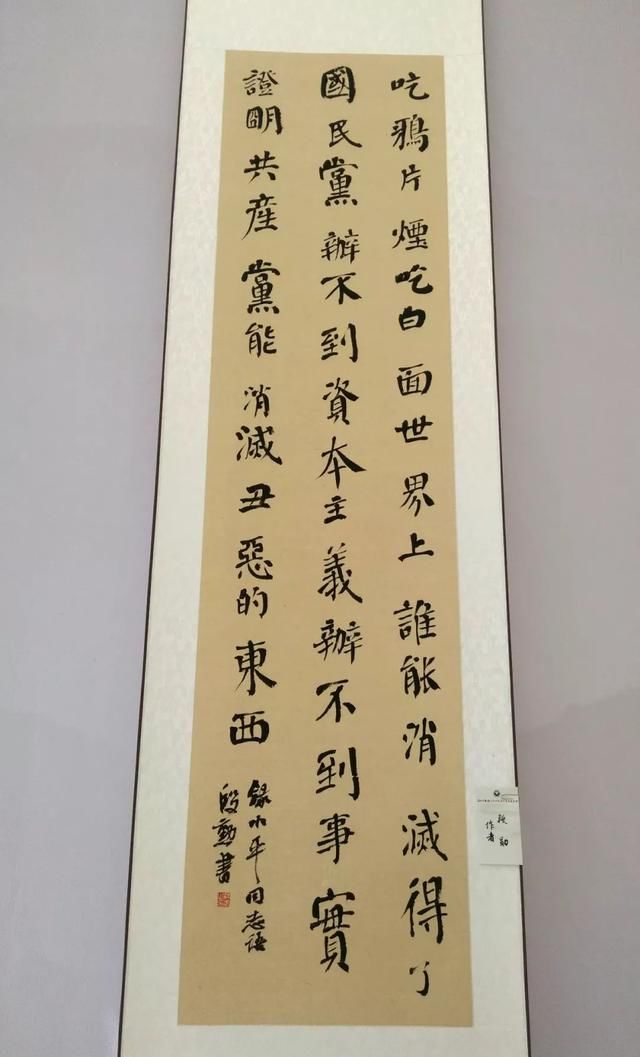 吃鴉片煙吃白面世界上誰能消滅得了
國民黨辦不到資本主義辦不到事實
證明共產黨能消滅丑惡的東西
錄小平同志語
殷勳書
作者